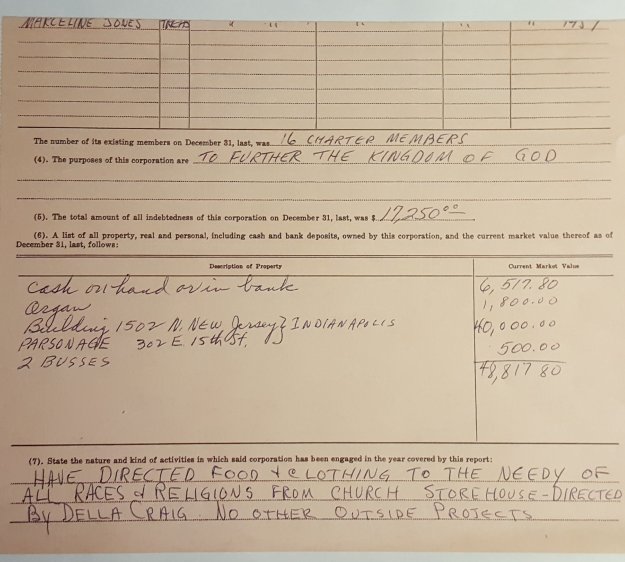 MARCELINE JONES TREAS " " " " " 1957
The number of its existing members on December 31, last, was 16 CHARTER MEMBERS
(4). The purposes of this corporation are TO FURTHER THE KINGDOM OF GOD
(5). The total amount of all indebtedness of this corporation on December 31, last, was $ 17,250.00
(6). A list of all property, real and personal, including cash and bank deposits, owned by this corporation, and the current market value thereof as of
December 31, last, follows:
Description of Property Current Market Value
Cash on hand or in bank 6,517.80
Organ 1,800.00
Building 1502 N. NEW Jersey } INDIANAPOLIS 40,000.00
PARSONAGE 302 E. 15th St.
2 BUSSES 500.00
48,817 80
(7). State the nature and kind of activities in which said corporation has been engaged in the year covered by this report:
HAVE DIRECTED FOOD & CLOTHING TO THE NEEDY OF
ALL RACES & RELIGIONS FROM CHURCH STOREHOUSE - DIRECTED
By DELLA CRAIG. NO OTHER OUTSIDE PROJECTS